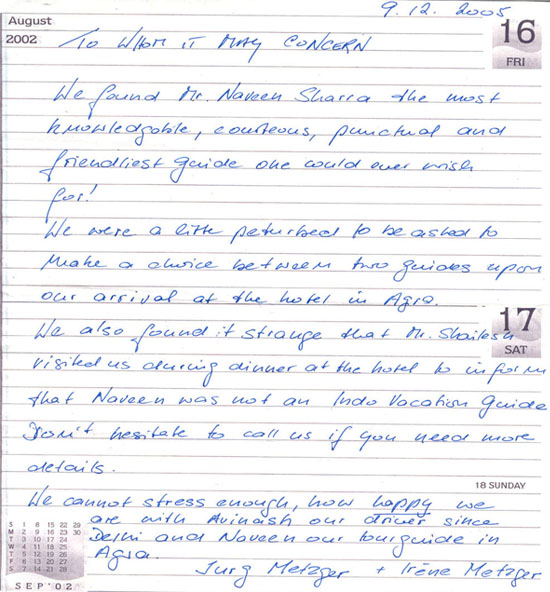 August
2002
9.12.2005
16
FRI
TO WHOM IT MAY CONCERN
We found Mr. Naveen Sharra the most
knowledgable, courteous, punctual and
friendliest guide one could ever wish
for!
We were a little peturbed to be asked to
make a choice between two guides upon
our arrival at the hotel in Agra.
17
SAT
We also found it strange that Mr. Shailesh
visited us during dinner at the hotel to inform
that Naveen was not an Indo Vacation Guide
Don't hesitate to call us if you need more
details.
18 SUNDAY
We cannot stress enough, how happy we
are with Avinash our driver since
Delhi and Naveen our tourguide in
Agra.
Jurg Metzger + Irène Metzger
S 1 8 15 22 29
M 2 9 16 23 30
T 3 10 17 24
W 4 11 18 25
T 5 12 19 26
F 6 13 20 27
S 7 14 21 28
SEP'02